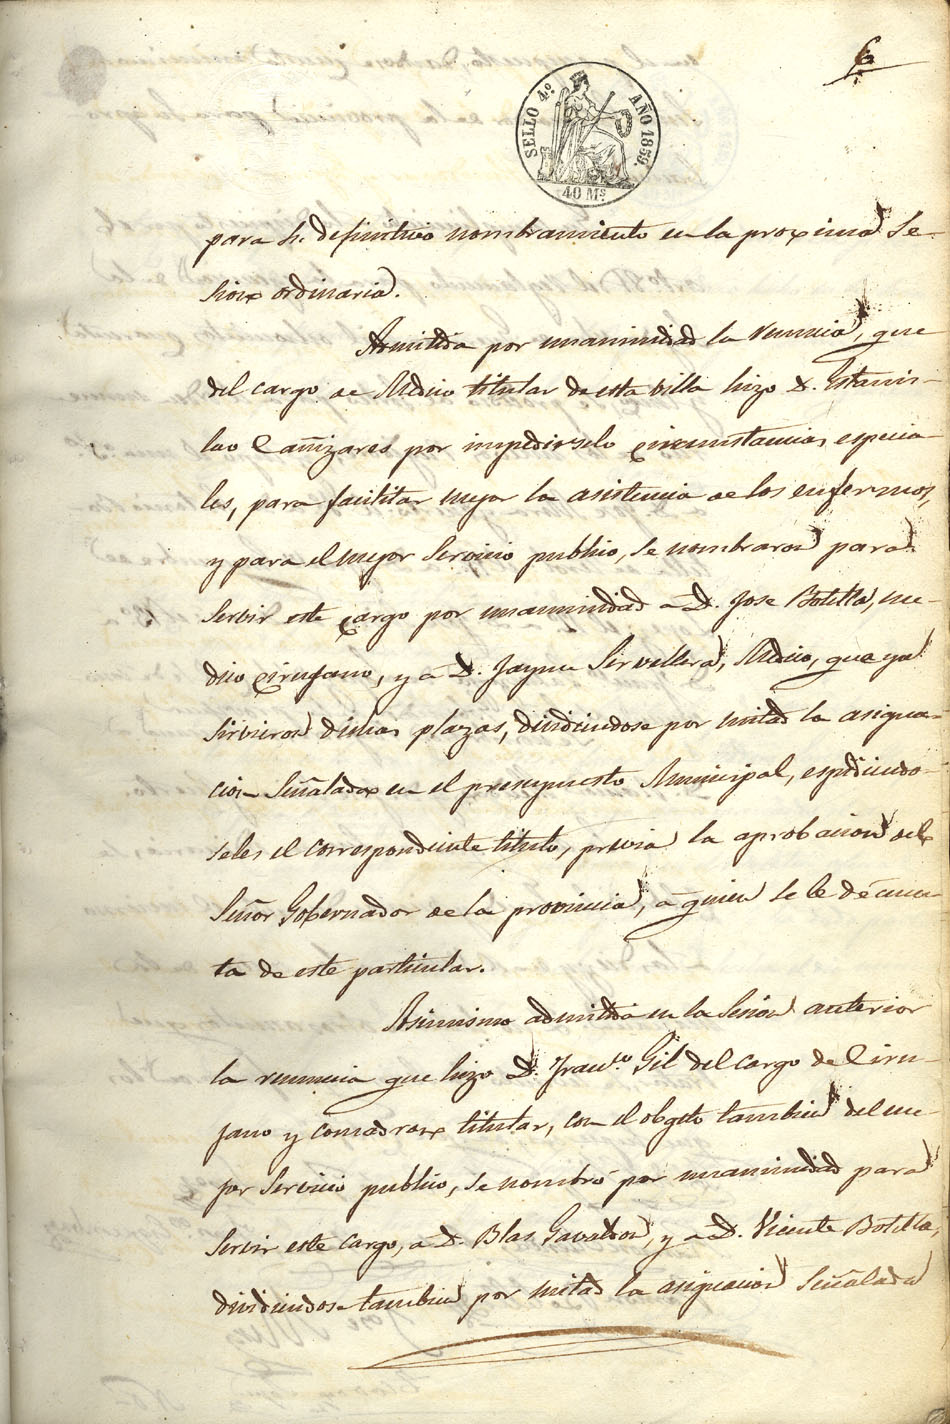 6
SELLO 4º AÑO 1859.
40 Ms
para su definitivo nombramiento en la proxima Se-
sion ordinaria.
Admitida por unanimidad la renuncia, que
del cargo de Medico titular de esta villa hizo D. Estanis-
lao Cañizares por impedirselo circunstancias especia-
les, para facilitar mejor la asistencia de los enfermos,
y para el mejor Servicio publico, se nombraron para
Servir este cargo por unanimidad a D. Jose Botella, me-
dico cirujano, y a D. Jayme Servellera, Medico, que ya
Sirvieron dichas plazas, dividiendose por mitad la asigna-
cion Señalada en el presupuesto Municipal, espidiendo-
seles el correspondiente titulo, previa la aprobacion del
Señor Gobernador de la provincia, a quien se le dé cuen-
ta de este particular.
Asimismo admitida en la Sesion anterior
la renuncia que hizo D. Franco. Gil del cargo de Ciru-
jano y comadron titular, con el obgeto tambien del me-
jor Servicio publico, se nombró por unanimidad para
Servir este cargo, a D. Blas Gavaldon, y a D. Vicente Botella,
dividiendose tambien por mitad la asignacion Señalada